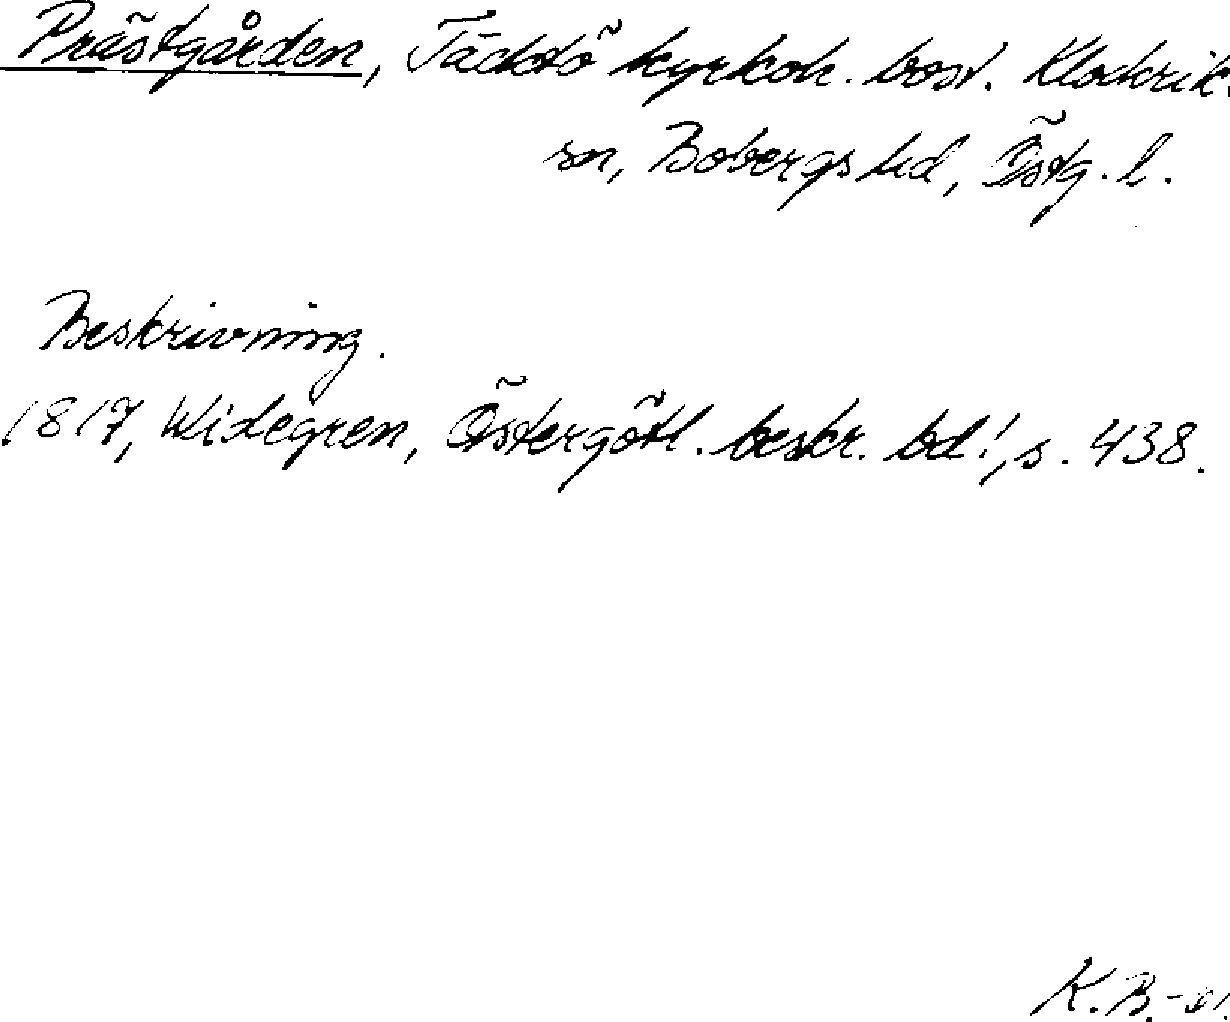 Prästgården, Täcktö kyrkoh. bost. Klockrik.
sn, Bobergs hd, Östg. l.
Beskrivning.
1817, Widegren, Östergötl. beskr. bd 1, s. 438.
K.B.